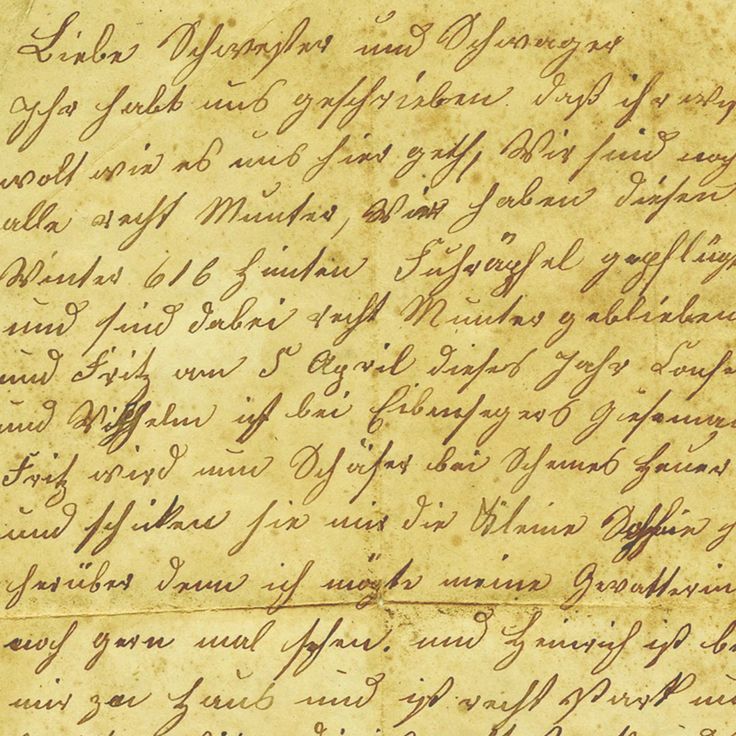 Liebe Schwester und Schwager
Ihr habt uns geschrieben daß ihr
wolt wie es uns hier geth, Wir sind noch
alle recht Munter, Wir haben diesen
Winter 616 Himten gepflügt
und sind dabei recht Munter geblieben
und Fritz am 5 April dieses Jahr
und Wilhelm ist bei
Fritz wird nun Schäfer bei Heuer
und schicken sie mir die kleine Sophie
herüber denn ich mögte meine Gevatterin
noch gern mal sehen. und Heinrich ist
mir zu Haus und ist recht stark